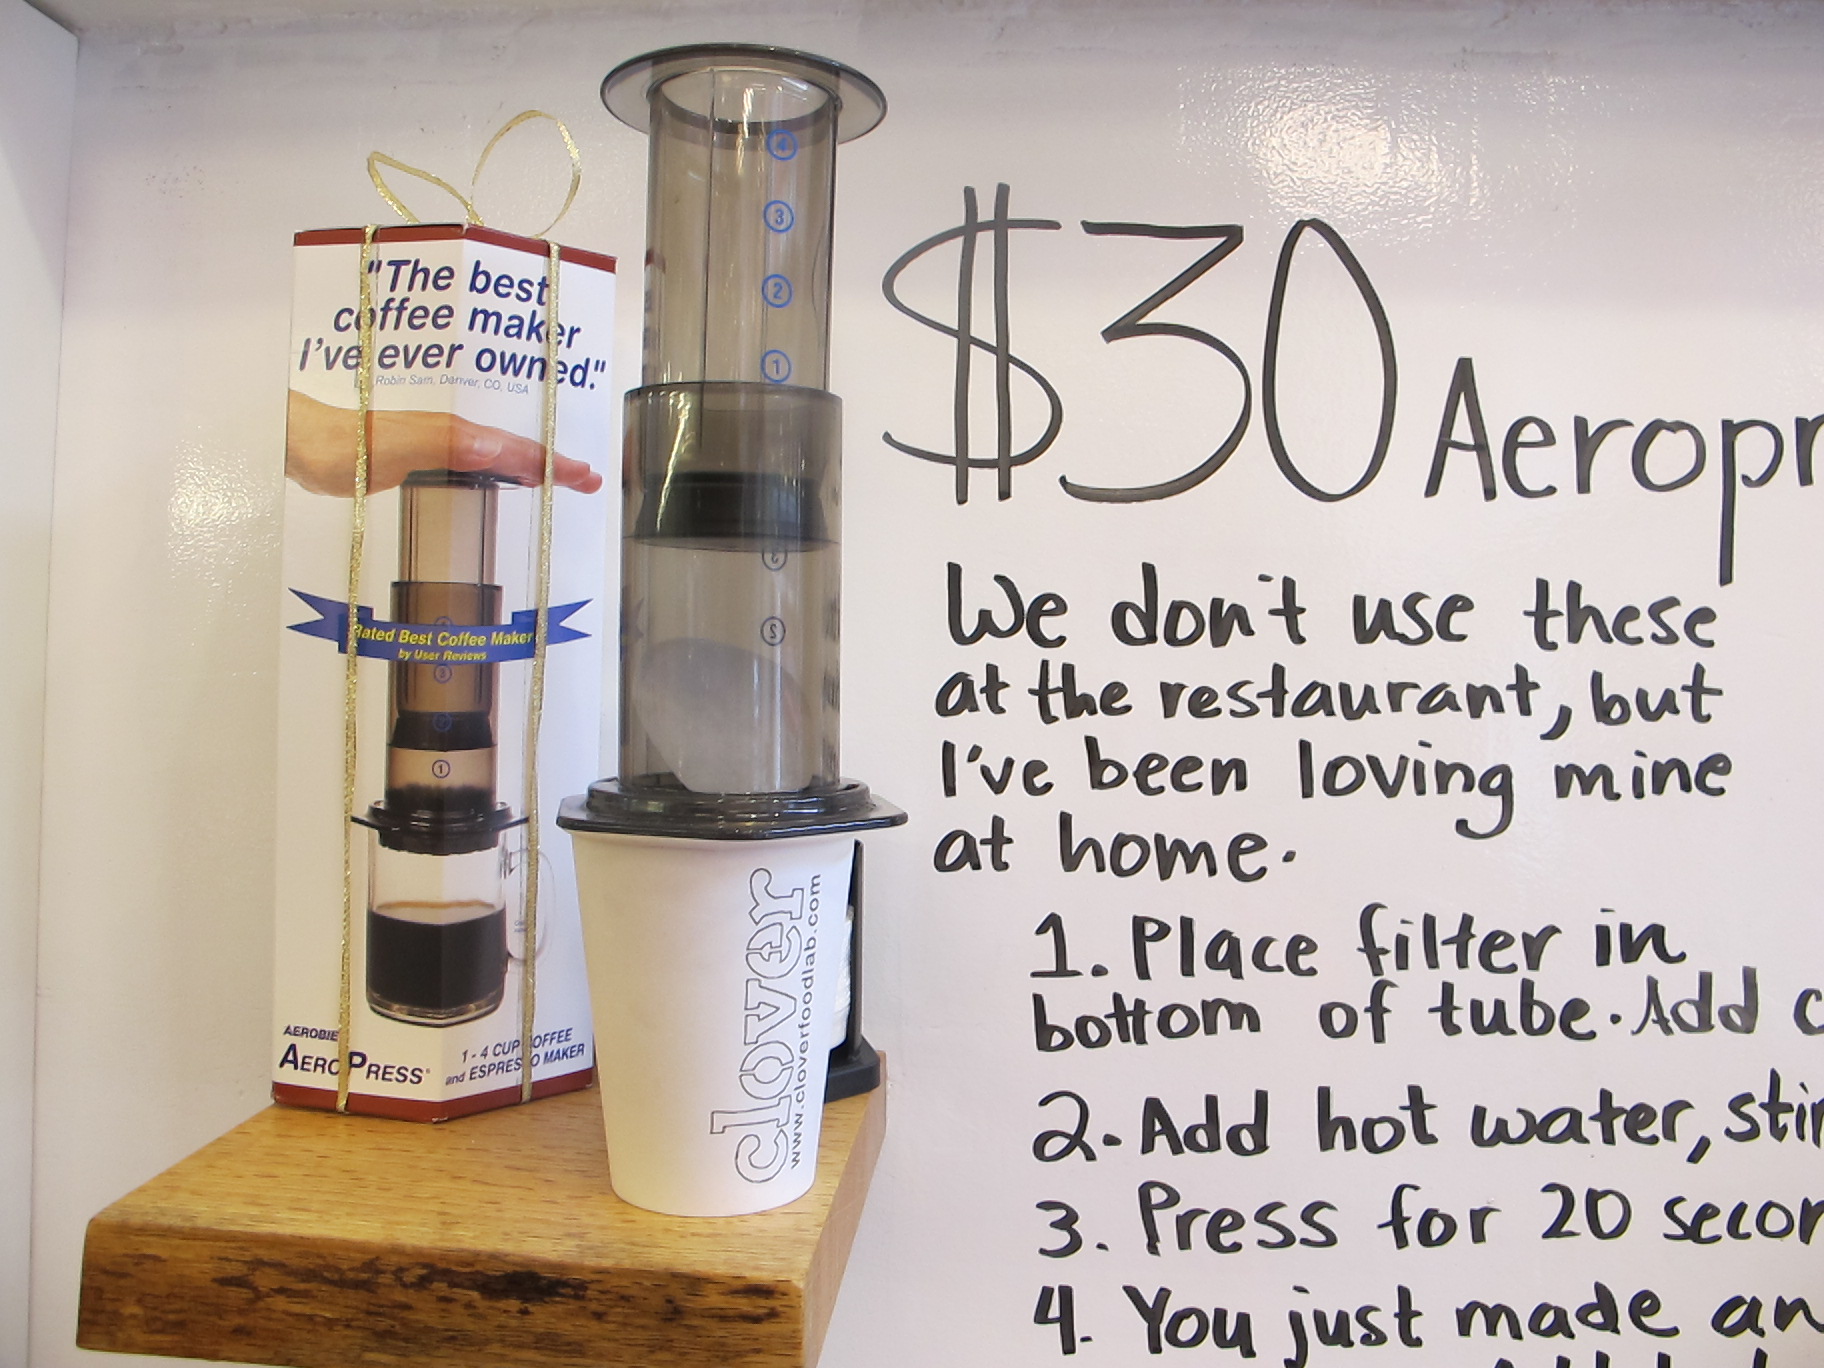 "The best
coffee maker
I've ever owned."
Robin Sam, Danver, CO, USA
Rated Best Coffee Maker
by User Reviews
3
2
1
AEROBIE
AEROPRESS
1 - 4 CUP COFFEE
and ESPRESSO MAKER
4
3
2
1
clover
www.cloverfoodlab.com
$30 Aeropr
We don't use these
at the restaurant, but
I've been loving mine
at home.
1. Place filter in
bottom of tube. Add c
2. Add hot water, stir
3. Press for 20 secon
4. You just made an